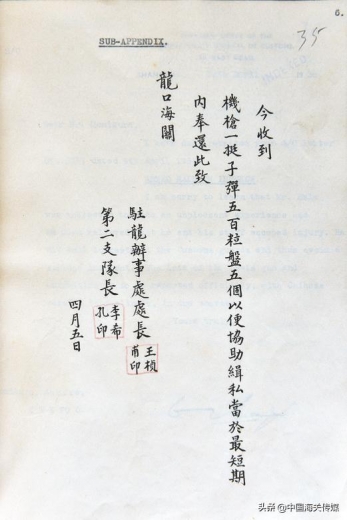 6.
35
SUB-APPENDIX.
今收到
機槍一挺子彈五百粒盤五個以便協助緝私當於最短期
內奉還此致
龍口海關
駐龍辦事處處長王楨甫印
第二支隊長李希孔印
四月五日
头条 @中国海关传媒